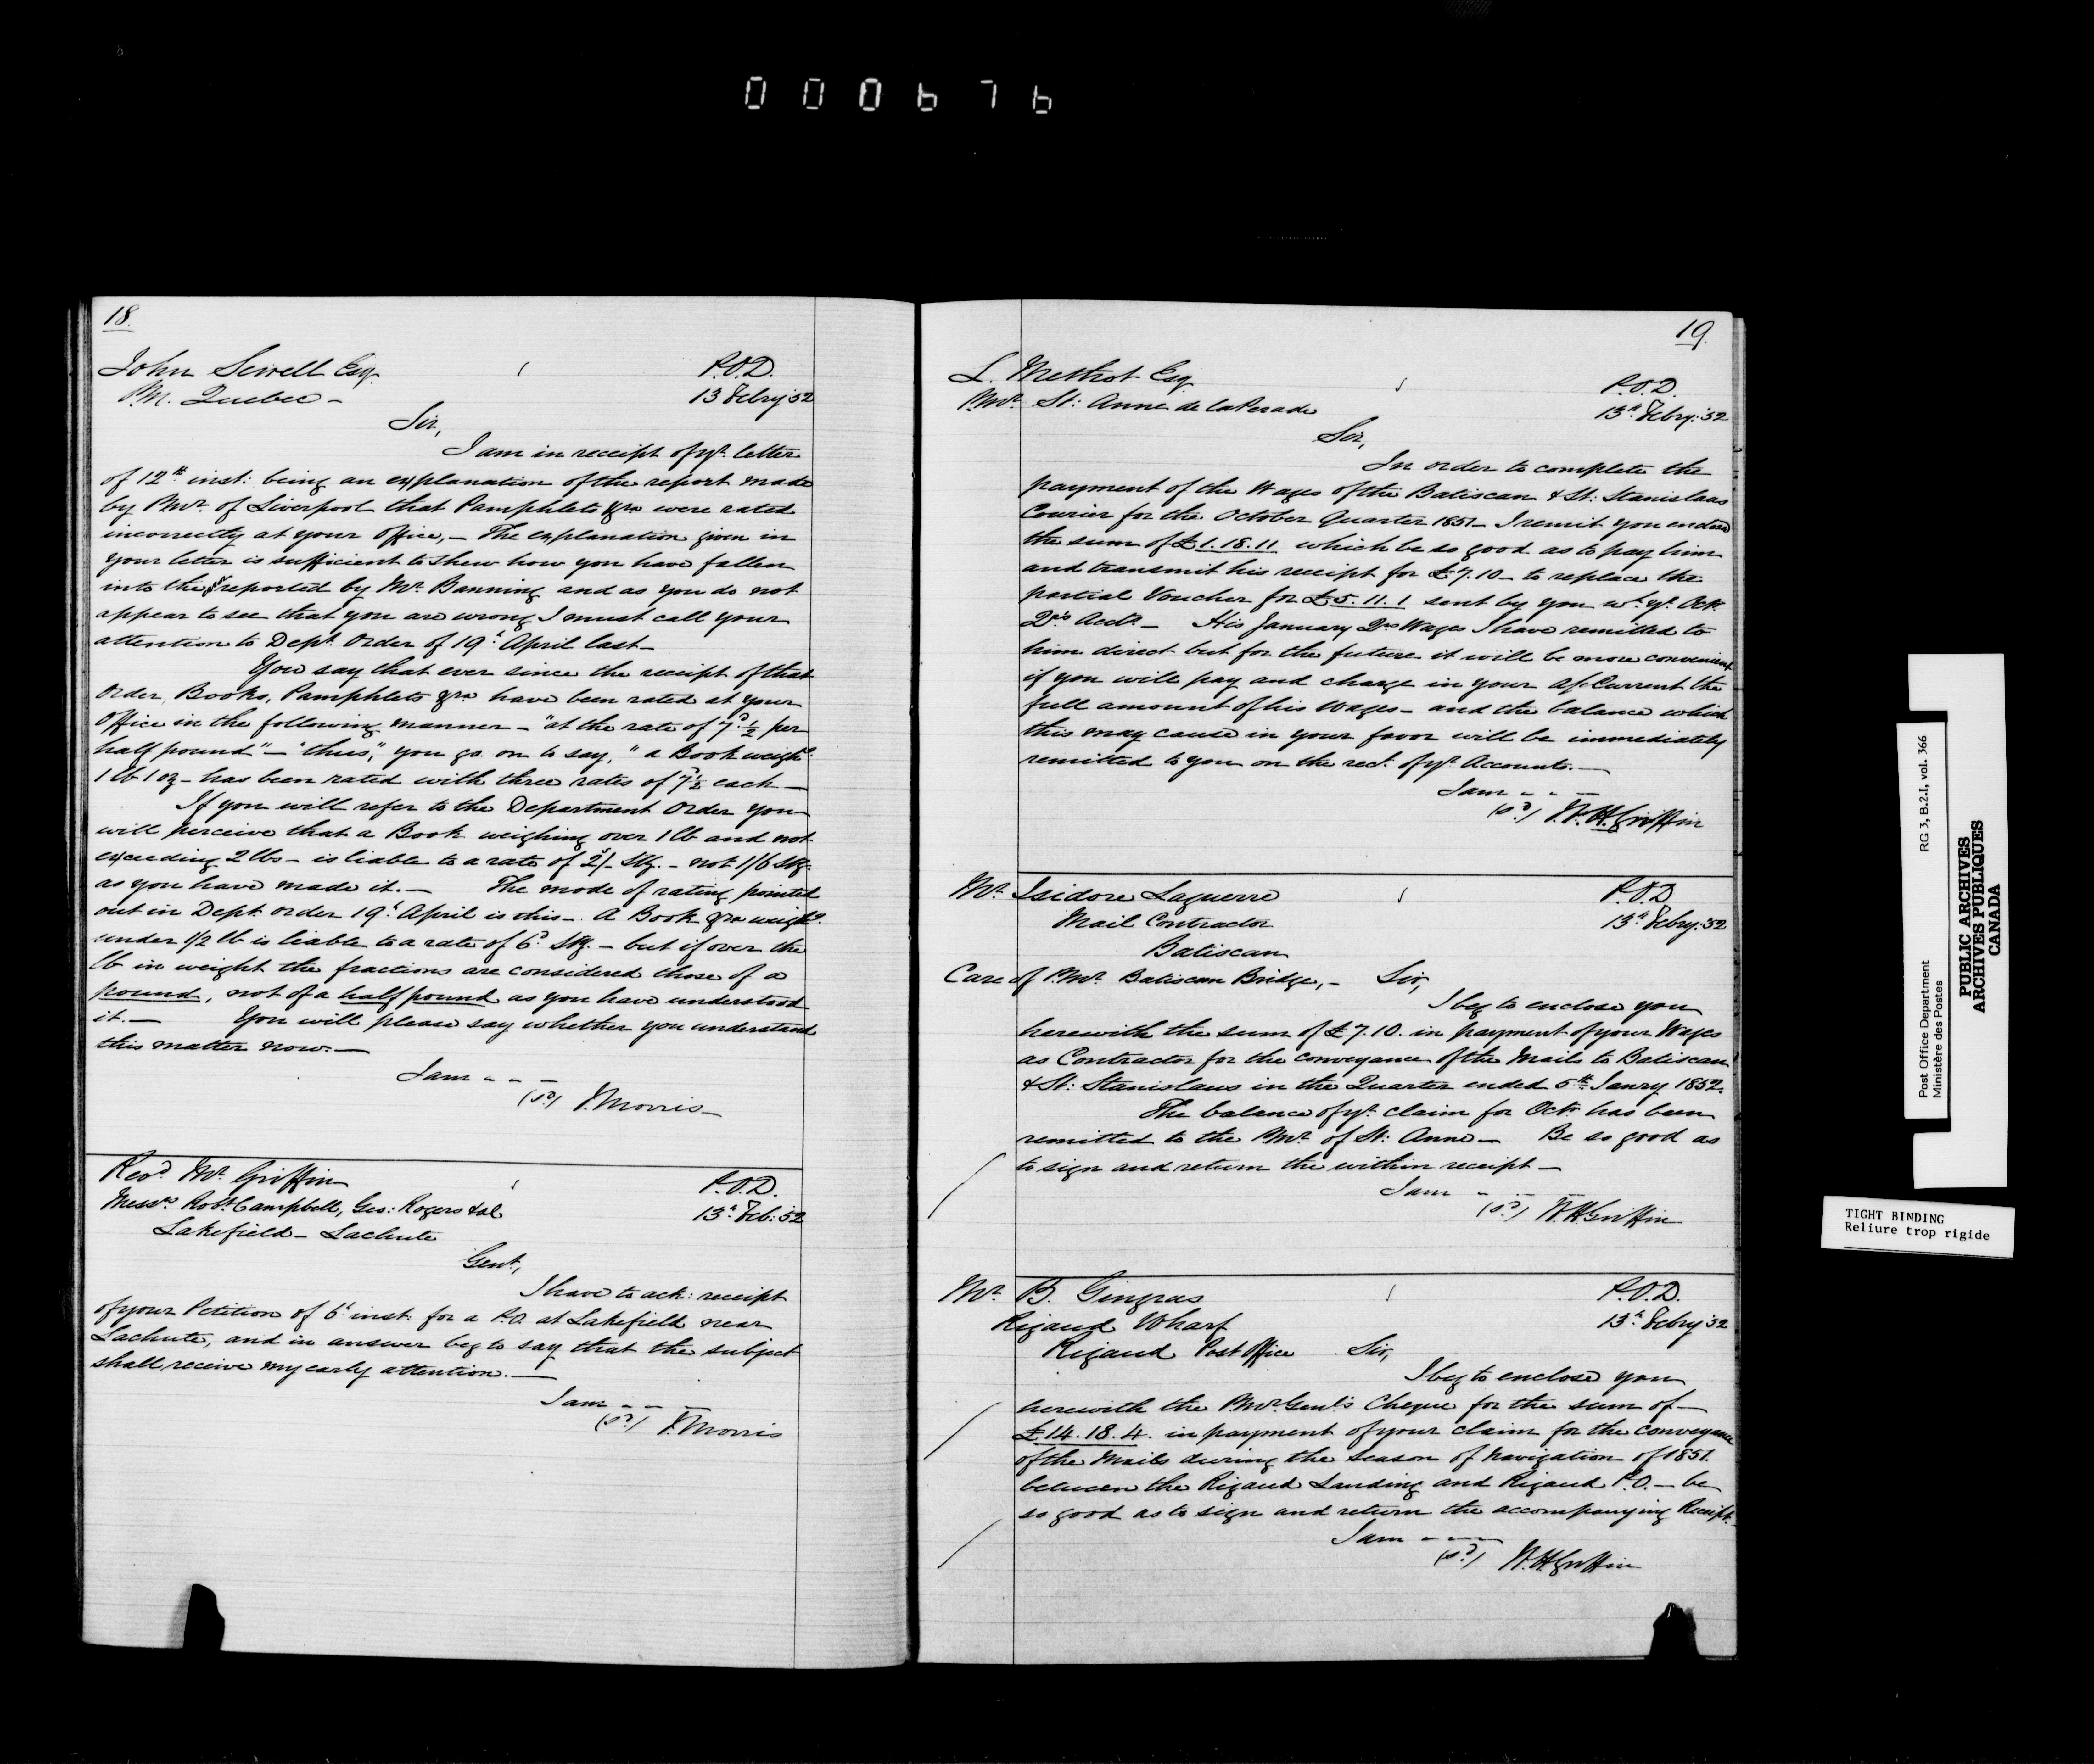 000676
18.
John Sewell Esq.
P.M. Quebec -
P.O.D.
13 Febry '52
Sir,
I am in receipt of yr. letter
of 12th inst: being an explanation of the report made
by P.Mr. of Liverpool that Pamphlets &ca were rated
incorrectly at your Office, - The explanation given in
your letter is sufficient to shew how you have fallen
into the reported by Mr. Banning and as you do not
appear to see that you are wrong I must call your
attention to Dept. Order of 19th April last -
You say that ever since the receipt of that
Order, Books, Pamphlets &ca have been rated at your
Office in the following manner - "at the rate of 7d ½ per
half pound" - "thus," you go on to say, "a Book weighg.
1 lb 1 oz - has been rated with three rates of 7d½ each -
If you will refer to the Department Order you
will perceive that a Book weighing over 1 lb and not
exceeding 2 lbs - is liable to a rate of 2s/- Stg. - not 1/6 Stg.
as you have made it. - The mode of rating pointed
out in Dept. order 19th April is this - A Book &ca weighg.
under 1/2 lb is liable to a rate of 6d. Stg. - but if over the
lb in weight the fractions are considered those of a
pound, not of a half pound as you have understood
it. - You will please say whether you understand
this matter now. -
I am - - -
(sd.) J. Morris -
Revd. Mr. Griffin
Messrs. Robt. Campbell, Geo: Rogers & al
Lakefield - Lachute
P.O.D.
13th Feb: '52
Gent.,
I have to ack: receipt
of your Petition of 6th inst: for a P.O. at Lakefield near
Lachute, and in answer beg to say that the subject
shall receive my early attention. -
I am - - -
(sd.) J. Morris
19.
L. Methot Esq.
P.Mr. St: Anne de la Perade
P.O.D.
13th Febry: '52
Sir,
In order to complete the
payment of the Wages of the Batiscan & St: Stanislaus
Courier for the October Quarter 1851 - I remit you enclosed
the sum of £1.18.11 which be so good as to pay him
and transmit his receipt for £7.10 - to replace the
partial Voucher for £5.11.1 sent by you wh. yr. Octr.
Qrs. Acct. - His January Qrs Wages I have remitted to
him direct but for the future it will be more convenient
if you will pay and charge in your A/c Current the
full amount of his Wages - and the balance which
this may cause in your favor will be immediately
remitted to you on the rect. of yr. Accounts. -
I am - - -
(sd.) W.H. Griffin
Mr. Isidore Laguerre
Mail Contractor
Batiscan
Care of P.Mr. Batiscan Bridge, -
P.O.D
13th Febry: '52
Sir,
I beg to enclose you
herewith the sum of £7.10. in payment of your Wages
as Contractor for the conveyance of the Mails to Batiscan
& St: Stanislaus in the Quarter ended 5th Janry 1852.
The balance of yr. claim for Octr. has been
remitted to the P.Mr. of St: Anne - Be so good as
to sign and return the within receipt -
I am - - -
(sd.) W.H. Griffin
Mr. B. Gingras
Rigaud Wharf
Rigaud Post Office
P.O.D.
13th Febry '52
Sir,
I beg to enclose you
herewith the P.Mr. Genl's Cheque for the sum of -
£14.18.4. in payment of your claim for the Conveyance
of the Mails during the Season of Navigation of 1851.
between the Rigaud Landing and Rigaud P.O. - be
so good as to sign and return the accompanying Receipt. -
I am - - -
(sd.) W.H. Griffin
Post Office Department
Ministère des Postes
RG 3, B.2.1, vol. 366
PUBLIC ARCHIVES
ARCHIVES PUBLIQUES
CANADA
TIGHT BINDING
Reliure trop rigide